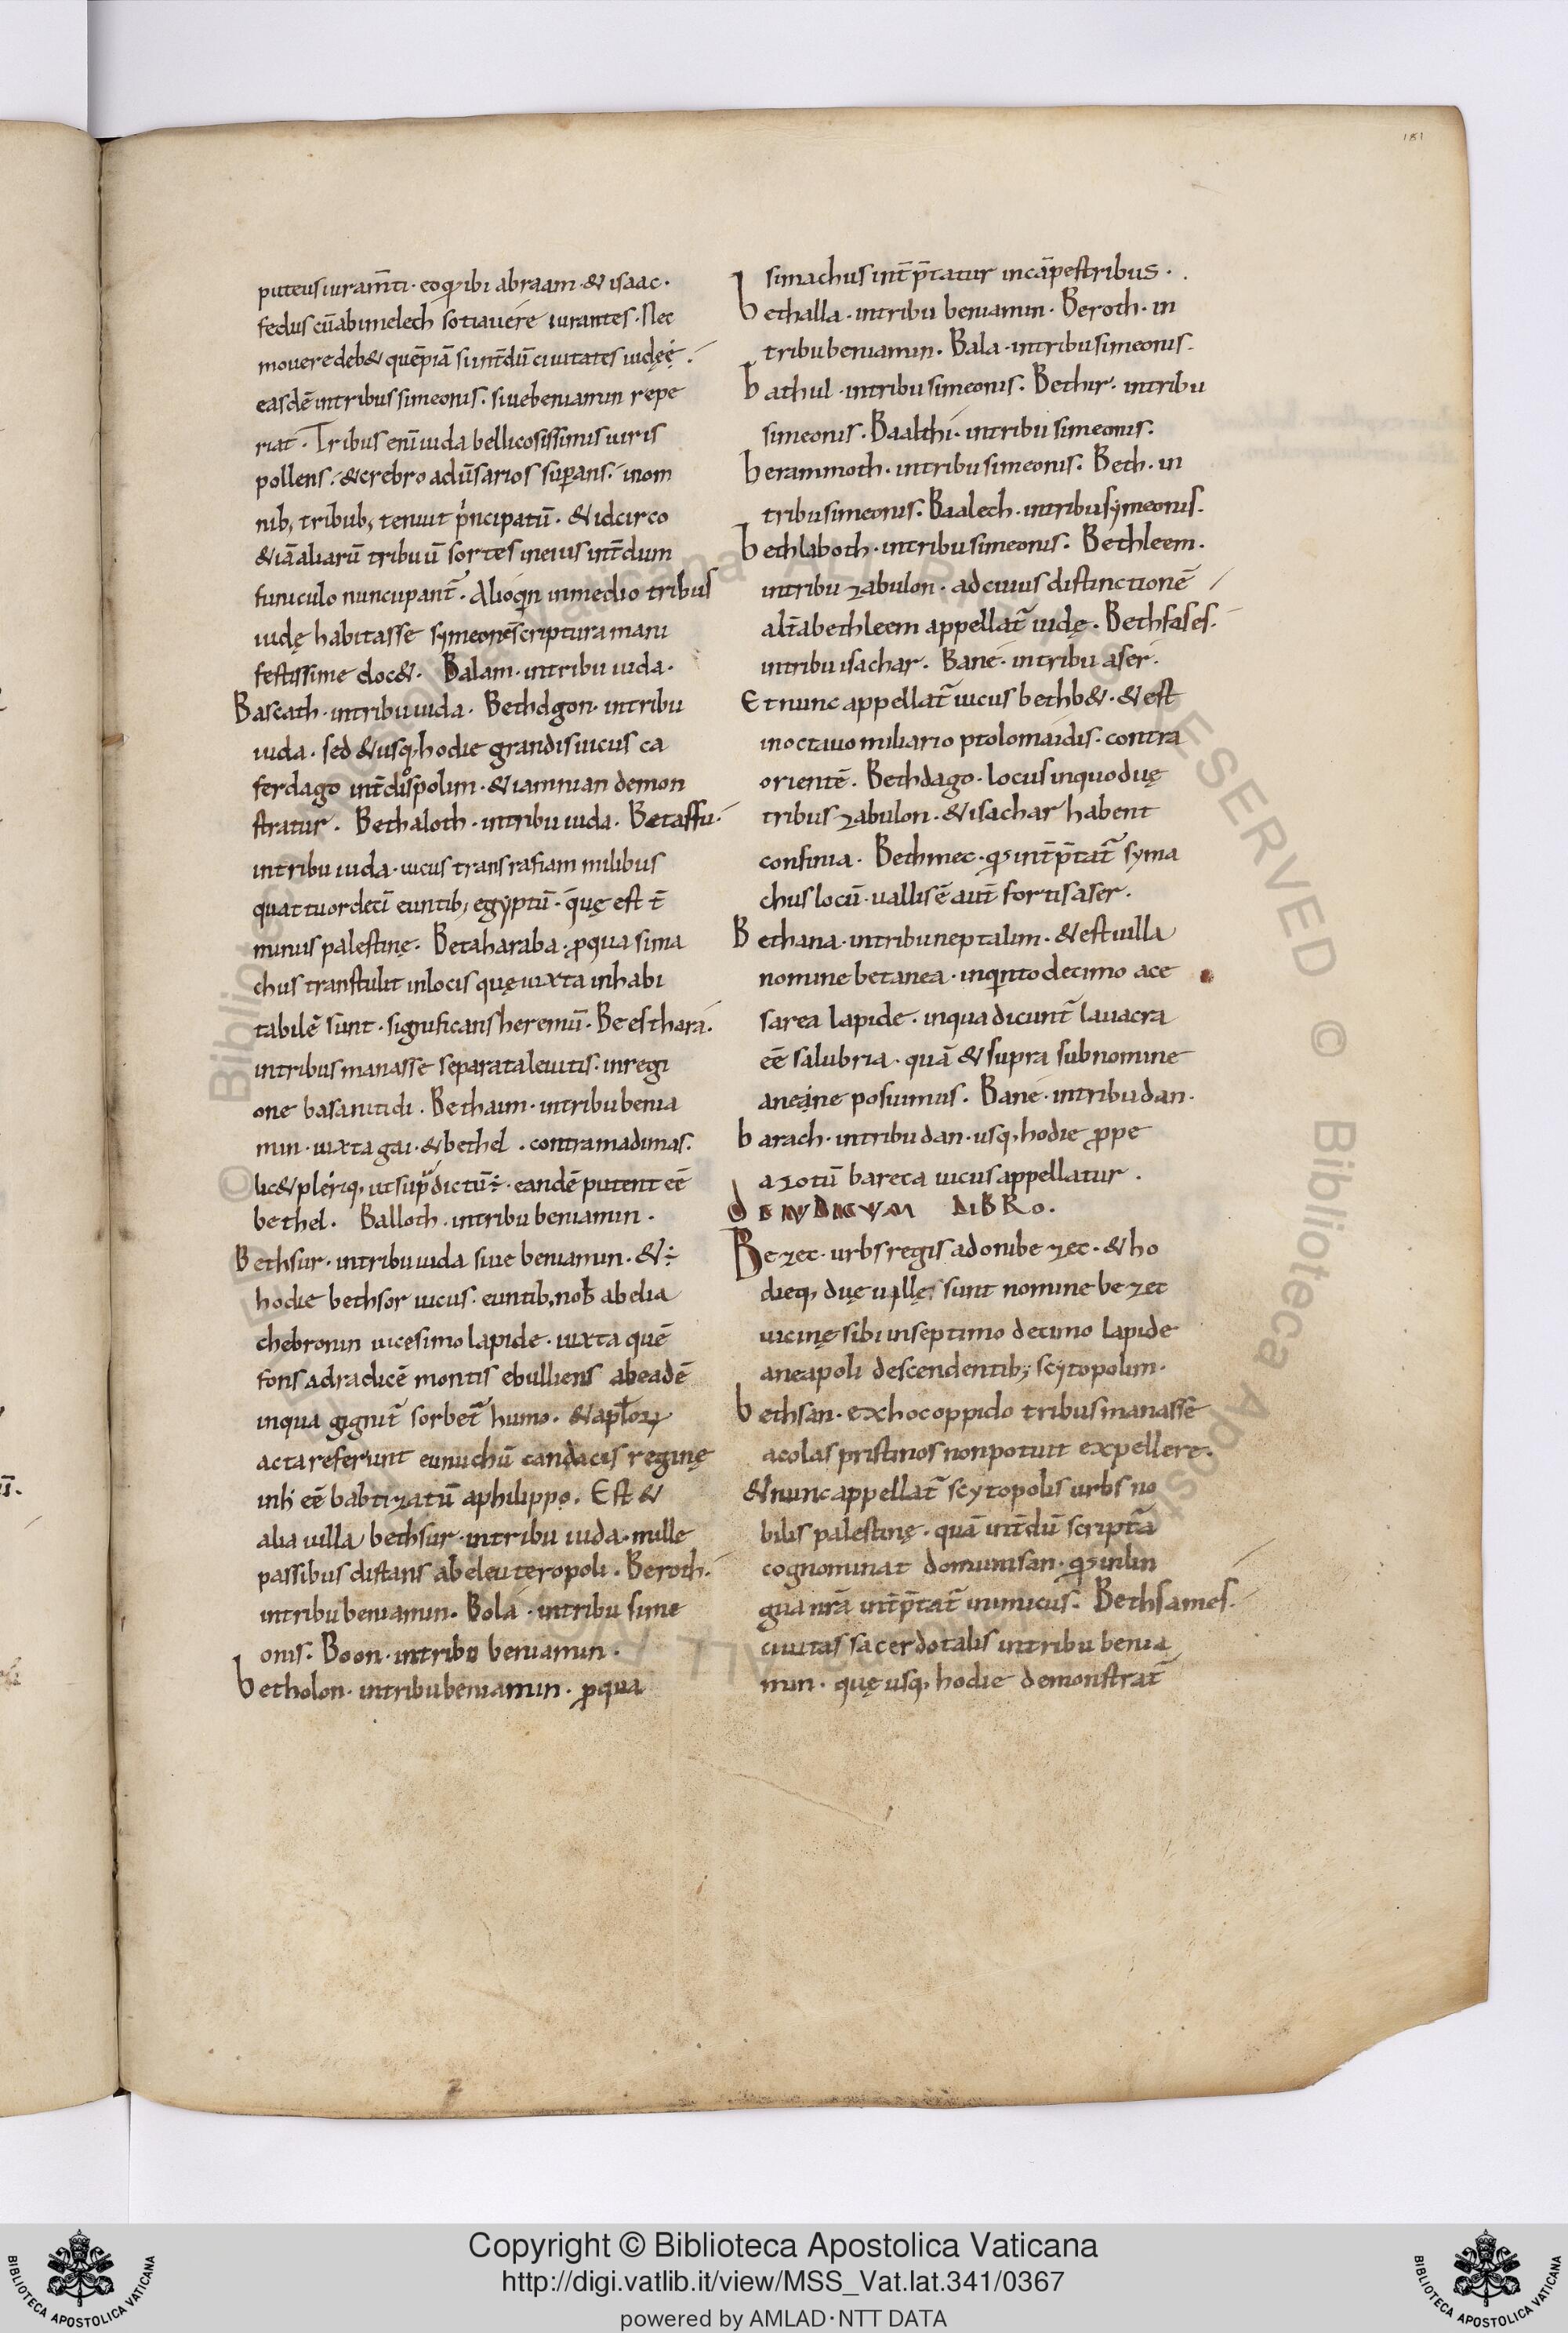 181
puteus iuram̄ti · eo qđ ibi abraam · & isaac ·
fedus cū abimelech sotiauere iurantes · Nec
mouere deb& quēpiā si int̄dū ciuitates iudęę ·
easdē in tribus simeonis · siue beniamin repe
riat · Tribus enī iuda bellicosissimis uiris
pollens · & crebro adūsarios suꝑans · in om
nib; tribub; tenuit pͥncipatū · & idcirco
& iā aliarū tribuū sortes in eius int̄dum
funiculo nuncupant̄ · Alioqͥn in medio tribus
iudę habitasse symeonē scriptura mani
festissime doc& · Balam · in tribu iuda ·
Bascath · in tribu iuda · Bethdgon · in tribu
iuda · sed & usq; hodie grandis uicus ca
ferdago int̄ diospolim · & iamnian demon
stratur · Bethaloth · in tribu iuda · Betaffu ·
in tribu iuda · uicus trans rafiam milibus
quattuordecī euntib; egyptū · q̄uę est t̄
minus palestinę · Betaharaba · ꝓ qua sima
chus transtulit in locis quę iuxta inhabi
tabilē sunt · significans heremū · Beesthara ·
in tribus manasse separata leuitis · in regi
one basanitidi · Bethaun · in tribu benia
min · iuxta gai · & bethel · contra madimas ·
lic& pleriq; ut sup̄ dictū ÷ · eandē putent eē
bethel · Balloth · in tribu beniamin ·
Bethsur · in tribu iuda siue beniamin · & ÷
hodie bethsor uicus · euntib; nob̄ ab elia
chebronin uicesimo lapide · iuxta quē
fons ad radicē montis ebulliens ab eadē
in qua gignit̄ sorbet̄ humo · & apl̄oꝝ
acta referunt eunuchū candacis reginę
in h̓ eē babtizatū a philippo · Est &
alia uilla bethsur · in tribu iuda · mille
passibus distans ab eleuteropoli · Beroth ·
in tribu beniamin · Bola · in tribu sime
onis · Boon · in tribu beniamin ·
betholon · in tribu beniamin · ꝓ qua
simachus int̄p̄tatur in cāpestribus ·
bethalla · in tribu beniamin · Beroth · in
tribu beniamin · Bala · in tribu simeonis ·
bathul · in tribu simeonis · Bethir · in tribu
simeonis · Baalthi · in tribu simeonis ·
berammoth · in tribu simeonis · Beth · in
tribu simeonis · Baalech · in tribu symeonis ·
bethlaboth · in tribu simeonis · Bethleem ·
in tribu zabulon · ad cuius distinctionē
alt̄a bethleem appellat̄ iudę · Bethfases ·
in tribu isachar · Bane · in tribu aser ·
Et nunc appellat̄ uicus bethb& · & est
in octauo miliario ptolomaidis · contra
orientē · Bethdago · locus in quo duę
tribus zabulon · & isachar habent
confinia · Bethmec · qđ int̄p̄tat̄ syma
chus locū · uallis ē aut̄ fortis aser ·
Bethana · in tribu neptalim · & est uilla
nomine betanea · in qͥnto decimo a ce
sarea lapide · in qua dicunt̄ lauacra
eē salubria · quā & supra sub nomine
aneaine posuimus · Bane · in tribu dan ·
barach · in tribu dan · usq; hodie ꝓpe
azotū bareca uicus appellatur ·
DE IVDICVM LIBRO ·
Bezec · urbs regis adonibezec · & ho
dieq; duę uillę sunt nomine bezec
uicinę sibi in septimo decimo lapide
a neapoli descendentib; scytopolim ·
bethsan · ex hoc oppido tribus manasse
acolas pristinos non potuit expellere ·
& nunc appellat̄ scytopolis urbs no
bilis palestinę · quā int̄dū scriptā
cognominat domum san · qđ in lin
gua nrā int̄p̄tat̄ inimicus · Bethsames ·
ciuitas sacerdotalis in tribu benia
min · quę usq; hodie demonstrat̄
Copyright © Biblioteca Apostolica Vaticana
http://digi.vatlib.it/view/MSS_Vat.lat.341/0367
powered by AMLAD · NTT DATA
BIBLIOTECA APOSTOLICA VATICANA
BIBLIOTECA APOSTOLICA VATICANA